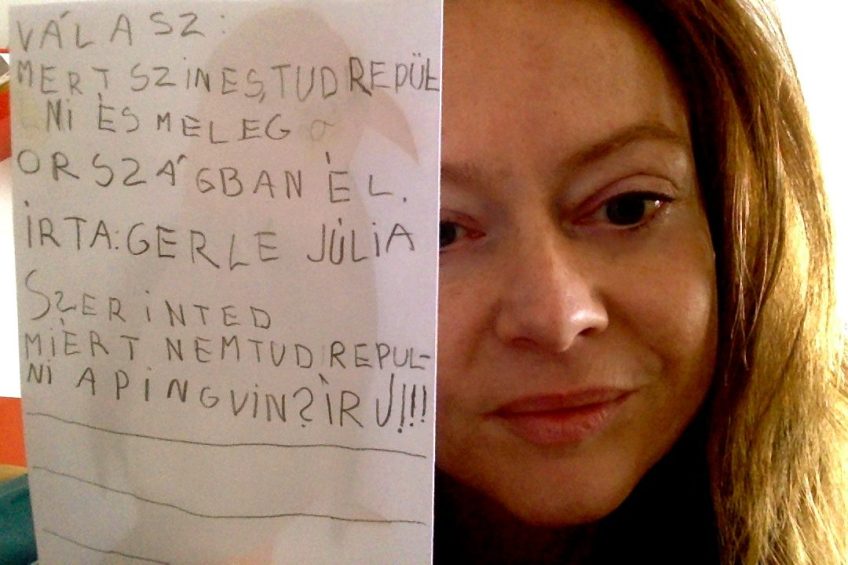 VÁLASZ:
MERT SZINES, TUD REPÜL
NI ÉS MELEG
ORSZÁGBAN ÉL.
ÍRTA: GERLE JÚLIA
SZERINTED
MIÉRT NEM TUD REPUL-
NI A PINGVIN? ÍRJ!!!